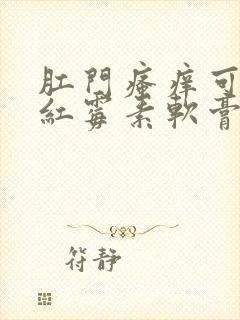 肛門瘙痒可
紅霉素軟膏
符静